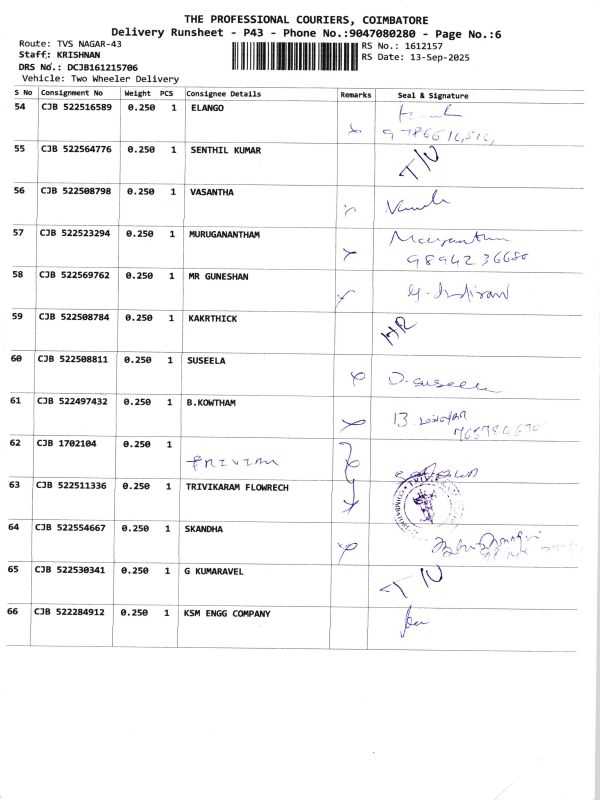 THE PROFESSIONAL COURIERS, COIMBATORE
Delivery Runsheet - P43 - Phone No.:9047080280 - Page No.:6
Route: TVS NAGAR-43
RS No.: 1612157
Staff: KRISHNAN
RS Date: 13-Sep-2025
DRS No.: DCJB161215706
Vehicle: Two Wheeler Delivery
S No Consignment No Weight PCS Consignee Details Remarks Seal & Signature
54 CJB 522516589 0.250 1 ELANGO
55 CJB 522564776 0.250 1 SENTHIL KUMAR
T/U
56 CJB 522508798 0.250 1 VASANTHA
57 CJB 522523294 0.250 1 MURUGANANTHAM
9894236680
58 CJB 522569762 0.250 1 MR GUNESHAN
59 CJB 522508784 0.250 1 KAKRTHICK
HR
60 CJB 522508811 0.250 1 SUSEELA
D. suseela
61 CJB 522497432 0.250 1 B.KOWTHAM
62 CJB 1702104 0.250 1
63 CJB 522511336 0.250 1 TRIVIKARAM FLOWRECH
64 CJB 522554667 0.250 1 SKANDHA
65 CJB 522530341 0.250 1 G KUMARAVEL
T/U
66 CJB 522284912 0.250 1 KSM ENGG COMPANY